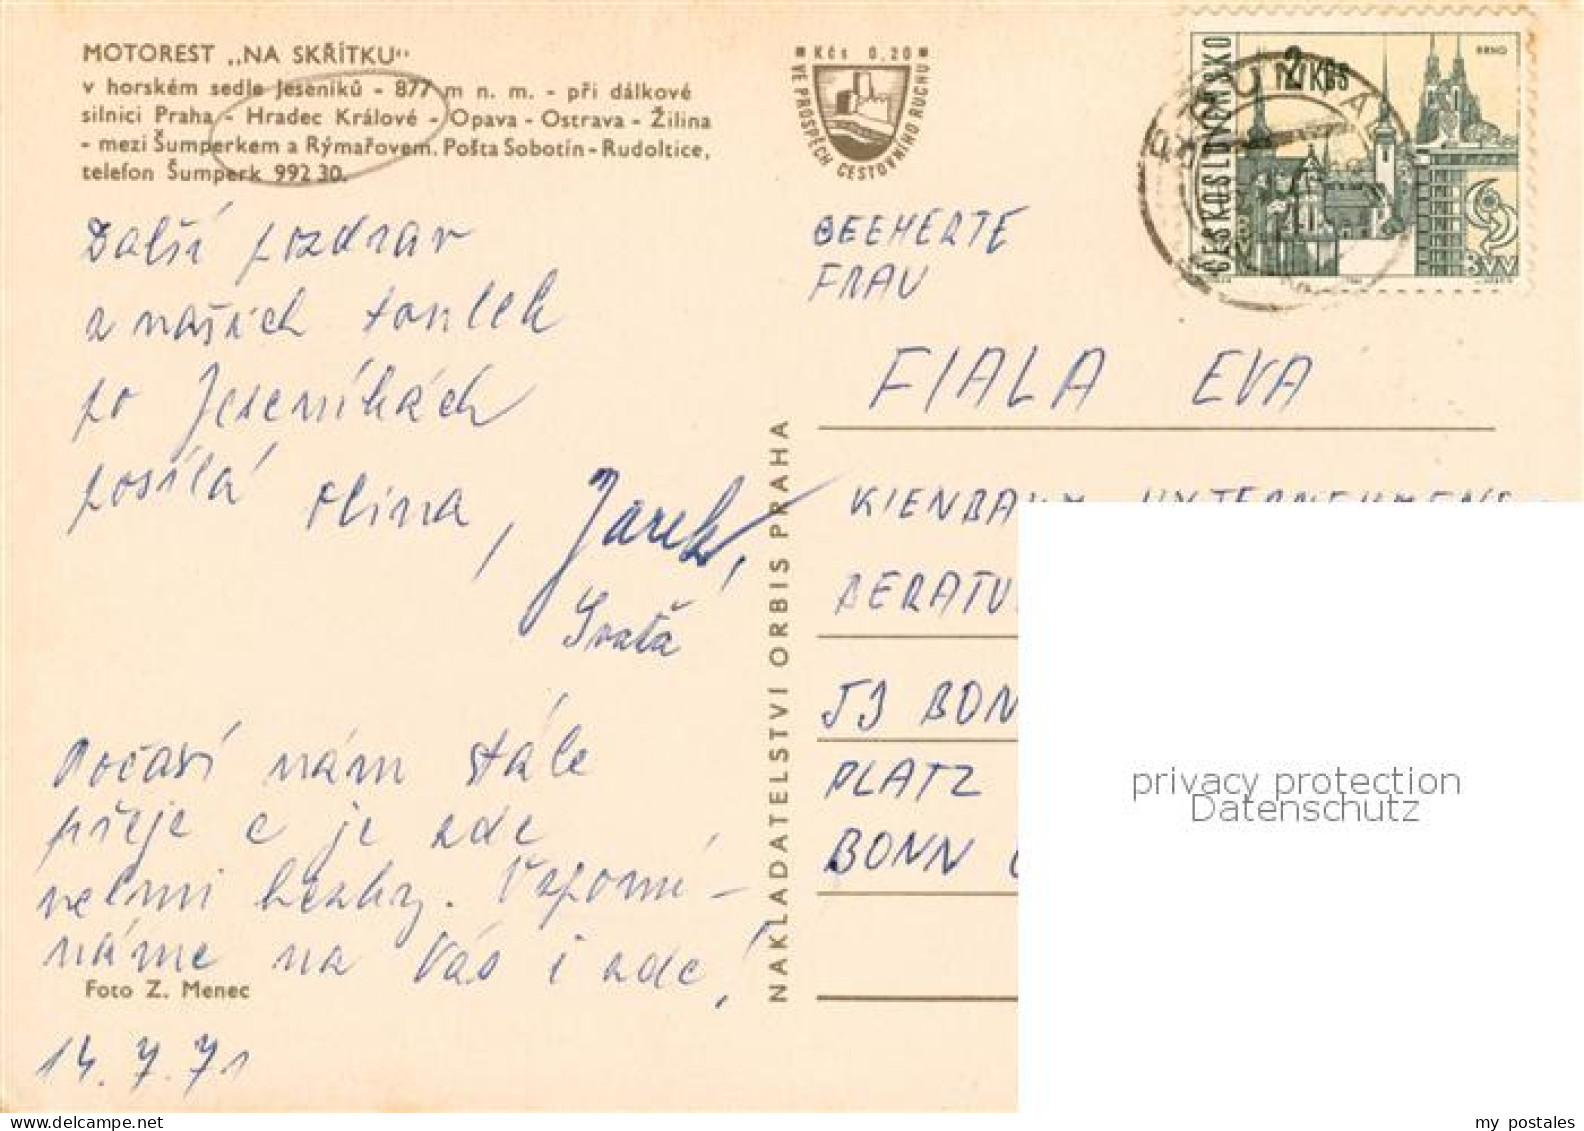 MOTOREST „NA SKŘÍTKU"
v horském sedle Jeseníků - 877 m n. m. - při dálkové
silnici Praha - Hradec Králové - Opava - Ostrava - Žilina
- mezi Šumperkem a Rýmařovem. Pošta Sobotín-Rudoltice,
telefon Šumperk 992 30.
Další pozdrav
z našich toulek
po Jeseníkách
posílá Olina, Jarek,
Svaťa
Počasí nám stále
přeje a je zde
velmi hezky. Vzpomí-
náme na Vás i zde!
Foto Z. Menec
14. 7. 71
NAKLADATELSTVÍ ORBIS PRAHA
Kčs 0,20
VE PROSPĚCH CESTOVNÍHO RUCHU
ČESKOSLOVENSKO
2 Kčs
BRNO
BVV
GEEHERTE
FRAU
FIALA EVA
KIENBAUM UNTERNEHMENS-
BERATU
53 BON
PLATZ
BONN
privacy protection
Datenschutz
my postales